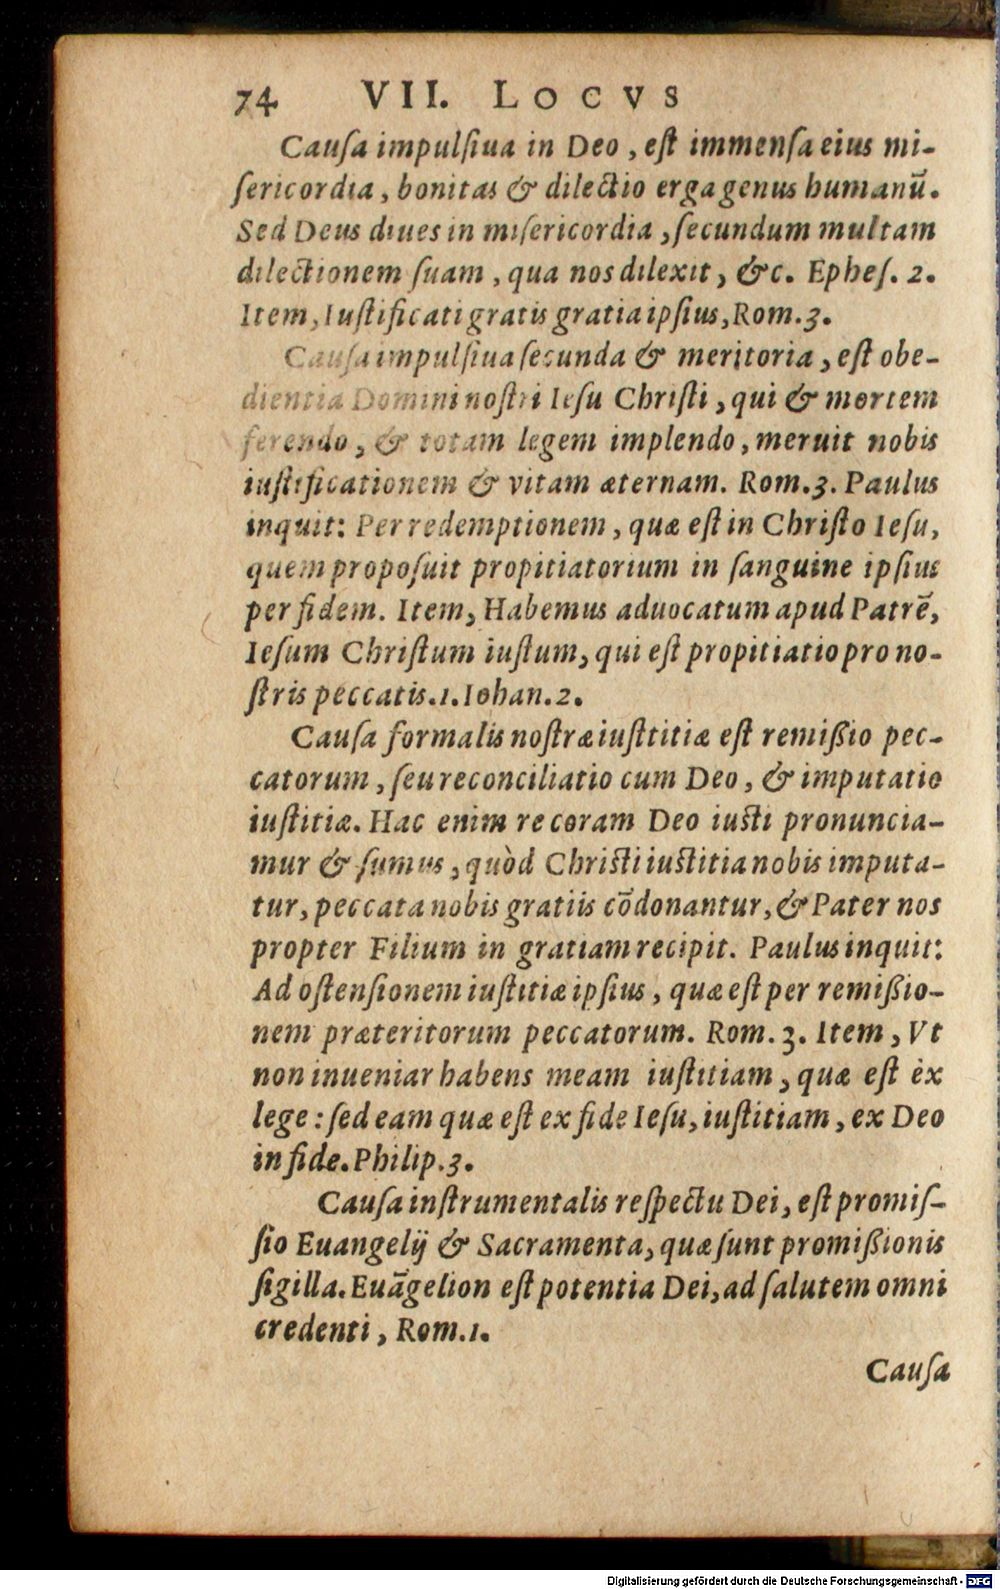 74 VII. LOCVS
Cauſa impulſiua in Deo, eſt immenſa eius mi-
ſericordia, bonitas & dilectio erga genus humanū.
Sed Deus diues in miſericordia, ſecundum multam
dilectionem ſuam, qua nos dilexit, &c. Epheſ. 2.
Item, Iuſtificati gratis gratia ipſius, Rom. 3.
Cauſa impulſiua ſecunda & meritoria, eſt obe-
dientia Domini noſtri Ieſu Chriſti, qui & mortem
ferendo, & totam legem implendo, meruit nobis
iuſtificationem & vitam æternam. Rom. 3. Paulus
inquit: Per redemptionem, quæ eſt in Chriſto Ieſu,
quem propoſuit propitiatorium in ſanguine ipſius
per fidem. Item, Habemus aduocatum apud Patrē,
Ieſum Chriſtum iuſtum, qui eſt propitiatio pro no-
ſtris peccatis. 1. Iohan. 2.
Cauſa formalis noſtræ iuſttitiæ eſt remiſſio pec-
catorum, ſeu reconciliatio cum Deo, & imputatio
iuſtitiæ. Hac enim re coram Deo iuſti pronuncia-
mur & ſumus, quòd Chriſti iuſtitia nobis imputa-
tur, peccata nobis gratiis cōdonantur, & Pater nos
propter Filium in gratiam recipit. Paulus inquit:
Ad oſtenſionem iuſtitiæ ipſius, quæ eſt per remiſſio-
nem præteritorum peccatorum. Rom. 3. Item, Vt
non inueniar habens meam iuſtitiam, quæ eſt èx
lege: ſed eam quæ eſt ex fide Ieſu, iuſtitiam, ex Deo
in fide. Philip. 3.
Cauſa inſtrumentalis reſpectu Dei, eſt promiſ-
ſio Euangelij & Sacramenta, quæ ſunt promiſſionis
ſigilla. Euāgelion eſt potentia Dei, ad ſalutem omni
credenti, Rom. 1.
Cauſa
Digitalisierung gefördert durch die Deutsche Forschungsgemeinschaft - DFG